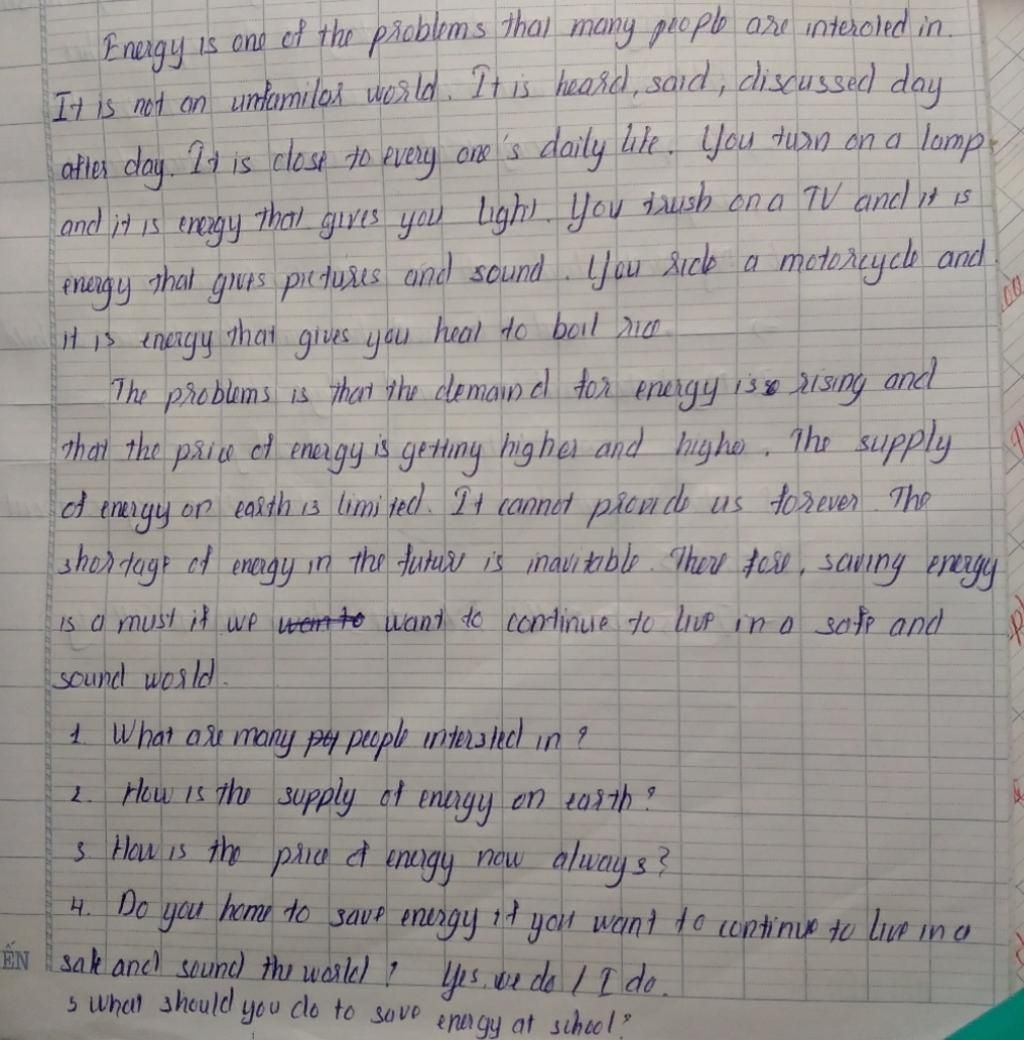 Energy is one of the problems that many people are interoled in.
It is not an unfamilor world. It is heard, said, discussed day
after day. It is close to every one's daily life. You turn on a lamp
and it is energy that gives you light. You trush on a TV and it is
energy that gives pictures and sound. You ride a motorcycle and
it is energy that gives you heat to boil rice
The problems is that the demaind for energy is rising and
that the price of energy is getting higher and highe. The supply
of energy on earth is limited. It cannot provide us forever. The
shortage of energy in the future is inavitable. There fore, saving energy
is a must if we want to continue to live in a safe and
sound world.
1. What are many people intersted in ?
2. How is the supply of energy on earth ?
3. How is the price of energy now always?
4. Do you home to save energy if you want to continue to live in a
ẾN safe and sound the world ? Yes, we do / I do.
5 What should you do to save energy at school?